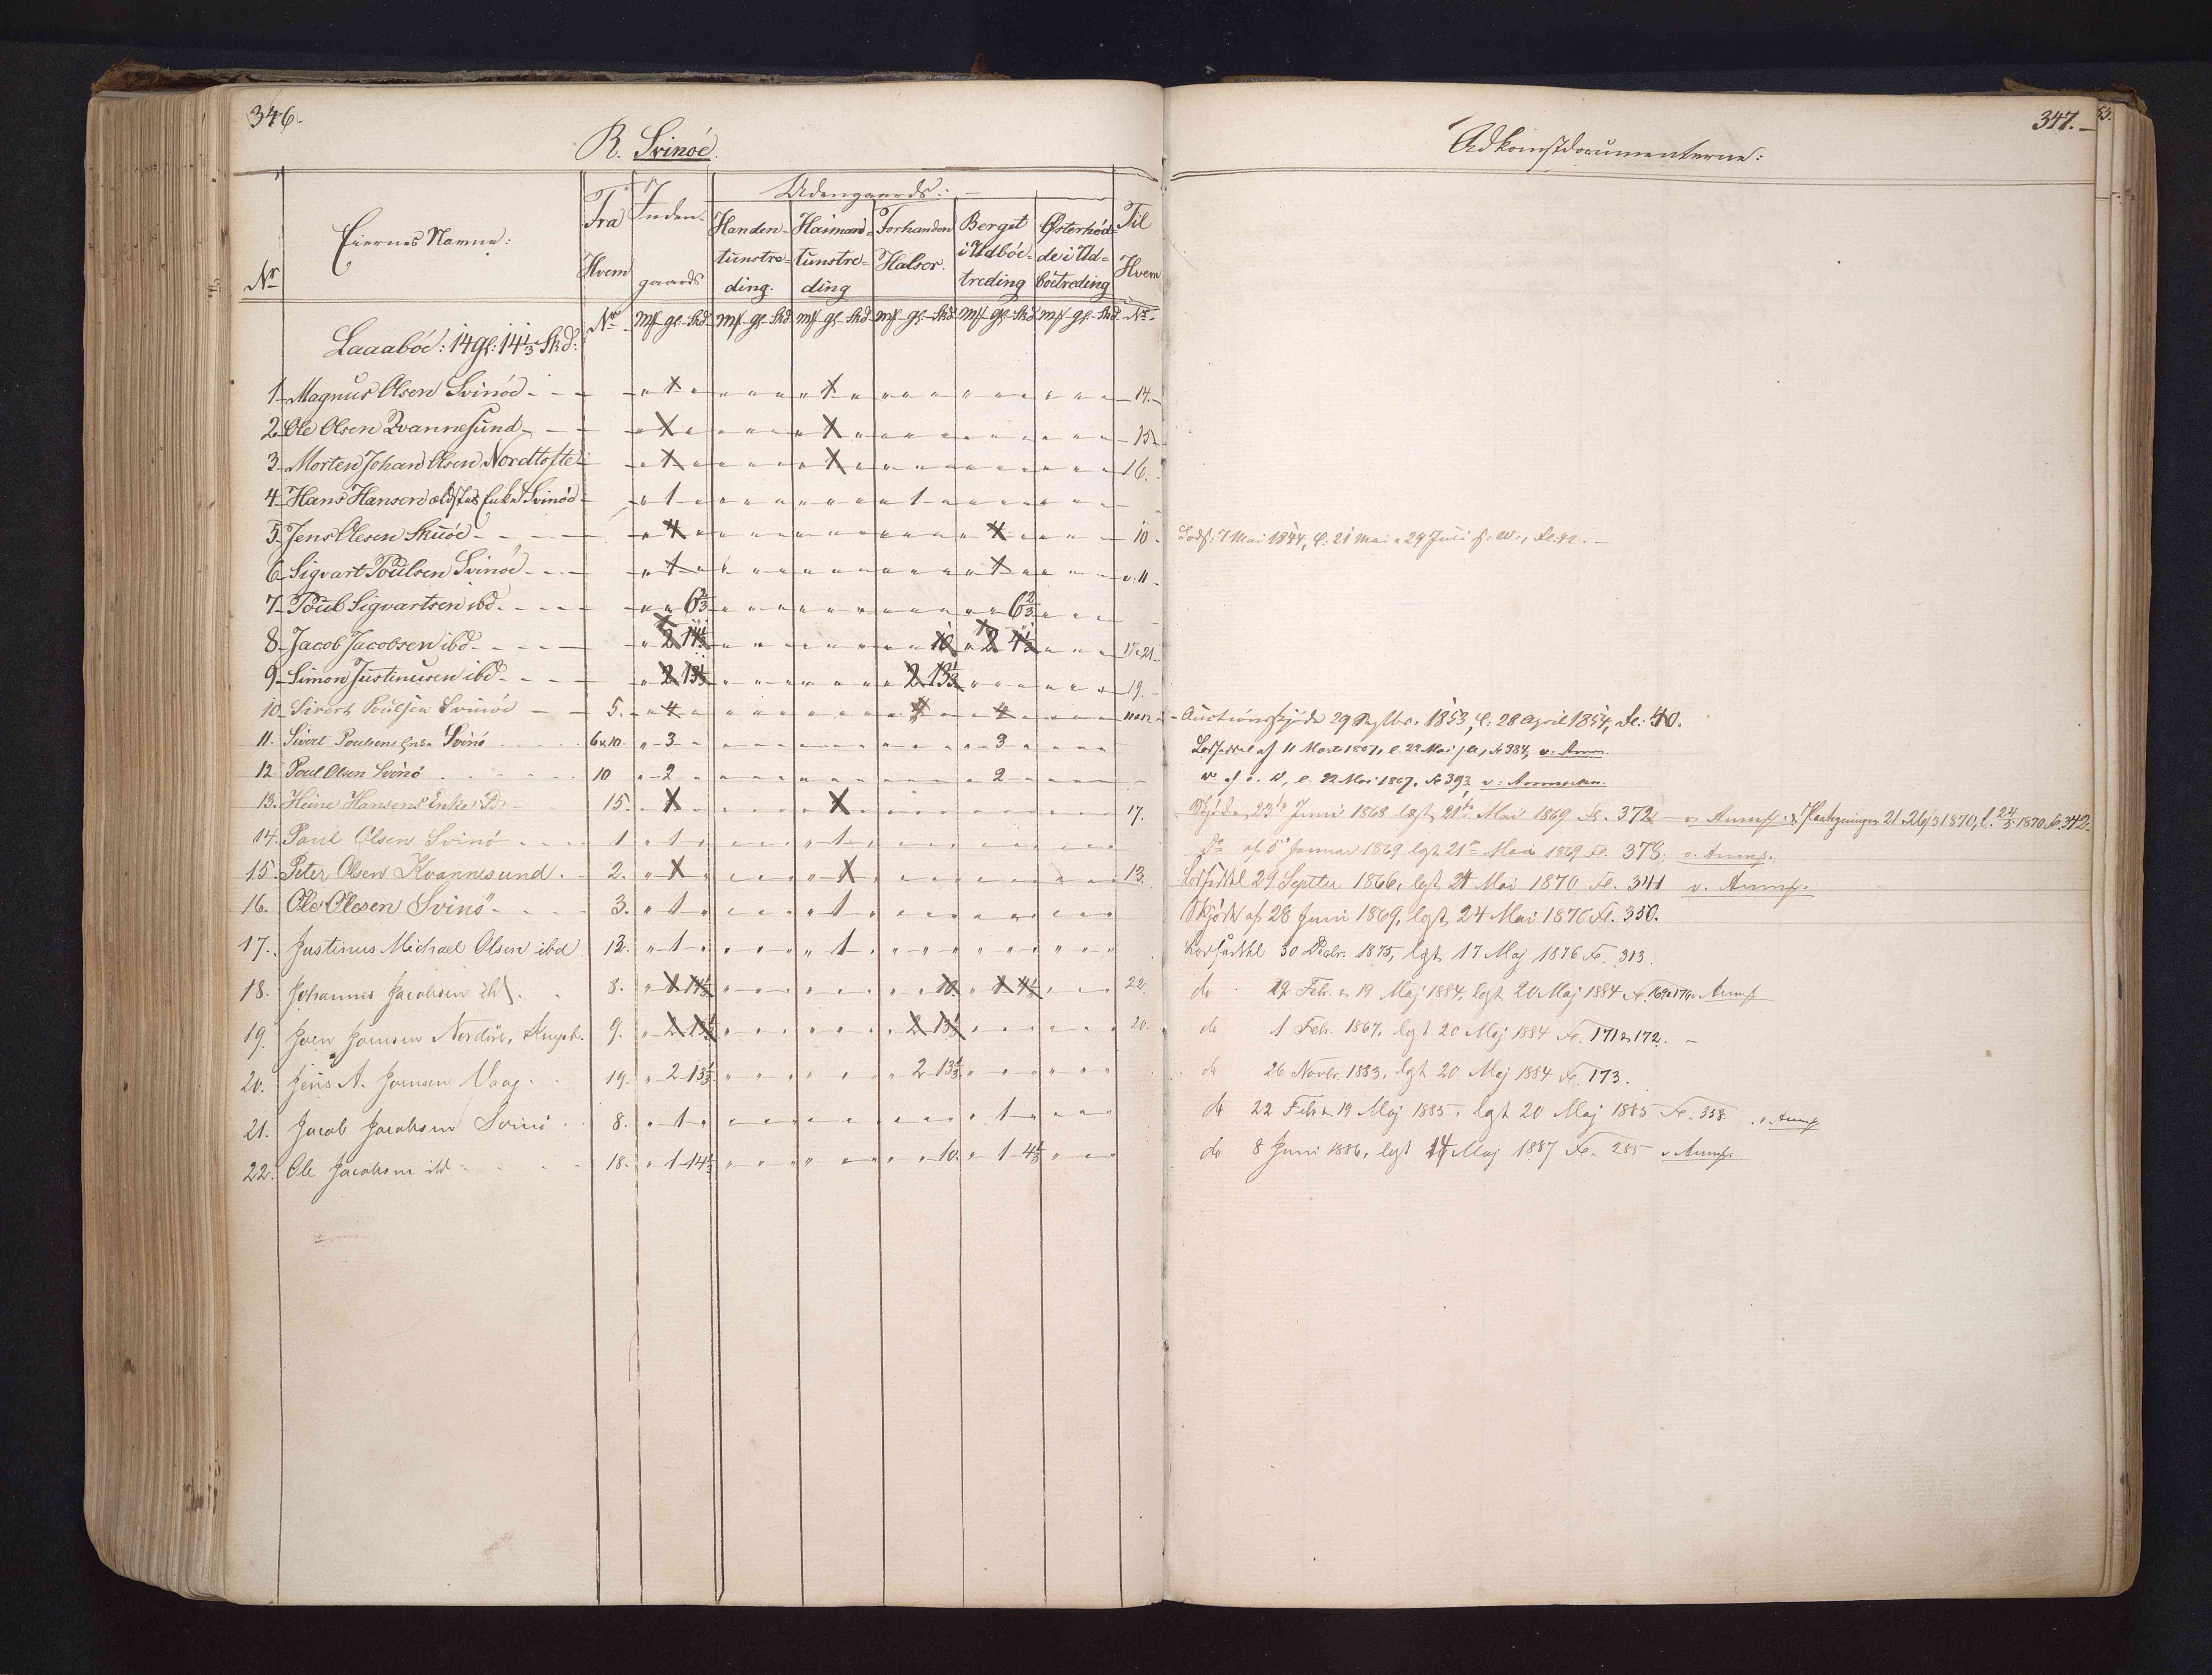 346.
R. Svinöe.
Nr
Eiernes Navne:
Fra Hvem
Nr
Inden-gaards
Udengaards:
Handen-tunstre-ding.
Haimand-tunstre-ding
Forhanden Halser.
Berget i Udböe-treding
Østerhöd-de i Ud-böetreding
Til Hvem
Nr.
Mk gl. Skd. Mk gl. Skd. Mk gl. Skd. Mk gl. Skd. Mk gl. Skd. Mk gl. Skd.
Laaaböe: 14 gl: 14 1/3 Skd:
1 Magnus Olsen Svinöe - - - " 1 " " 1 " 14.
2 Ole Olsen Qvannesund - - " 1 " " 1 " 15
3 Morten Johan Olsen Nordtofte " 1 " " 1 " 16.
4 Hans Hansen ældstes Enke Svinöe " 1 " " 1 "
5 Jens Olesen Skuöe - - - " 4 " " 4 " 10
6 Sigvart Poulsen Svinöe - - " 1 " " 1 " 11
7 Poul Sigvartsen ibd. - - " " 6 2/3 " " 6 2/3
8 Jacob Jacobsen ibd - - - " 2 14 1/3 " 10 " 2 4 1/3 17 & 21
9 Simon Justinusen ibd - - " 2 13 1/3 2 13 1/3 19.
10 Sivert Poulsen Svinöe - - 5. " 4 " " 4 " 11 & 12
11. Sivert Poulsens Enke Svinö 6 & 10. " 3 " " 3 "
12 Poul Olsen Svinö 10 " 2 " " 2 "
13. Heine Hansens Enke Do 15. " 1 " " 1 " 17.
14. Poul Olsen Svinö 1 " 1 " " 1 "
15. Peter Olsen Kvannesund. 2. " 1 " " 1 " 13.
16. Ole Olesen Svinö 3. " 1 " " 1 "
17. Justinus Michael Olsen ibd 13. " 1 " " 1 "
18. Johannes Jacobsen ibd. 8. " 1 14 1/3 " 10. " 1 4 1/3 22.
19. Joen Joensen Nordöre, 9. " 2 13 1/3 " 2 13 1/3 20.
20. Jens A. Joensen Vaag. 19. " 2 13 1/3 " 2 13 1/3
21. Jacob Jacobsen Svinö 8. " 1 " " 1 "
22. Ole Jacobsen ibd 18. " 1 14 1/3 " 10. " 1 4 1/3
347.
Adkomstdocumenterne:
7 Mai 1844, l: 21 Mai & 29 Juli
Auctionsskjöde 29 Septbr. 1853, l: 28 April 1854, No: 40.
Lodseddel af 11 Marts 1867, l. 22 Mai No 384, v. Anm.
l. 22 Mai 1867, No 393, v:
Skjöde 23de Juni 1868 lagt 21de Mai 1869 No. 372 v. Anmk. & Paategninger 21 & 26/3 1870, l. 24/5 1870 No 342.
Do af 5 Januar 1869 lgt 21de Mai 1869 No. 373, v. Anmk.
Lodseddel 29 Septbr 1866, lgt 24 Mai 1870 No. 341 v. Anmk.
Skjöde af 28 Juni 1869, lgt, 24 Mai 1870 No. 350.
Lodseddel 30 Decbr. 1875, lgt 17 Maj 1876 No. 313.
do 12 Febr. & 19 Maj 1884, lagt 20 Maj 1884 No. 169 & 170 v. Anmk
do 1 Febr. 1867, lgt 20 Maj 1884 No. 171 & 172.
do 26 Novbr. 1883, lgt 20 Maj 1884 No. 173.
do 22 Febr & 19 Maj 1885, lgt 20 Maj 1885 No. 358. v. Anmk
do 8 Juni 1886, lgt 14 Maj 1887 No. 285 v. Anmk.